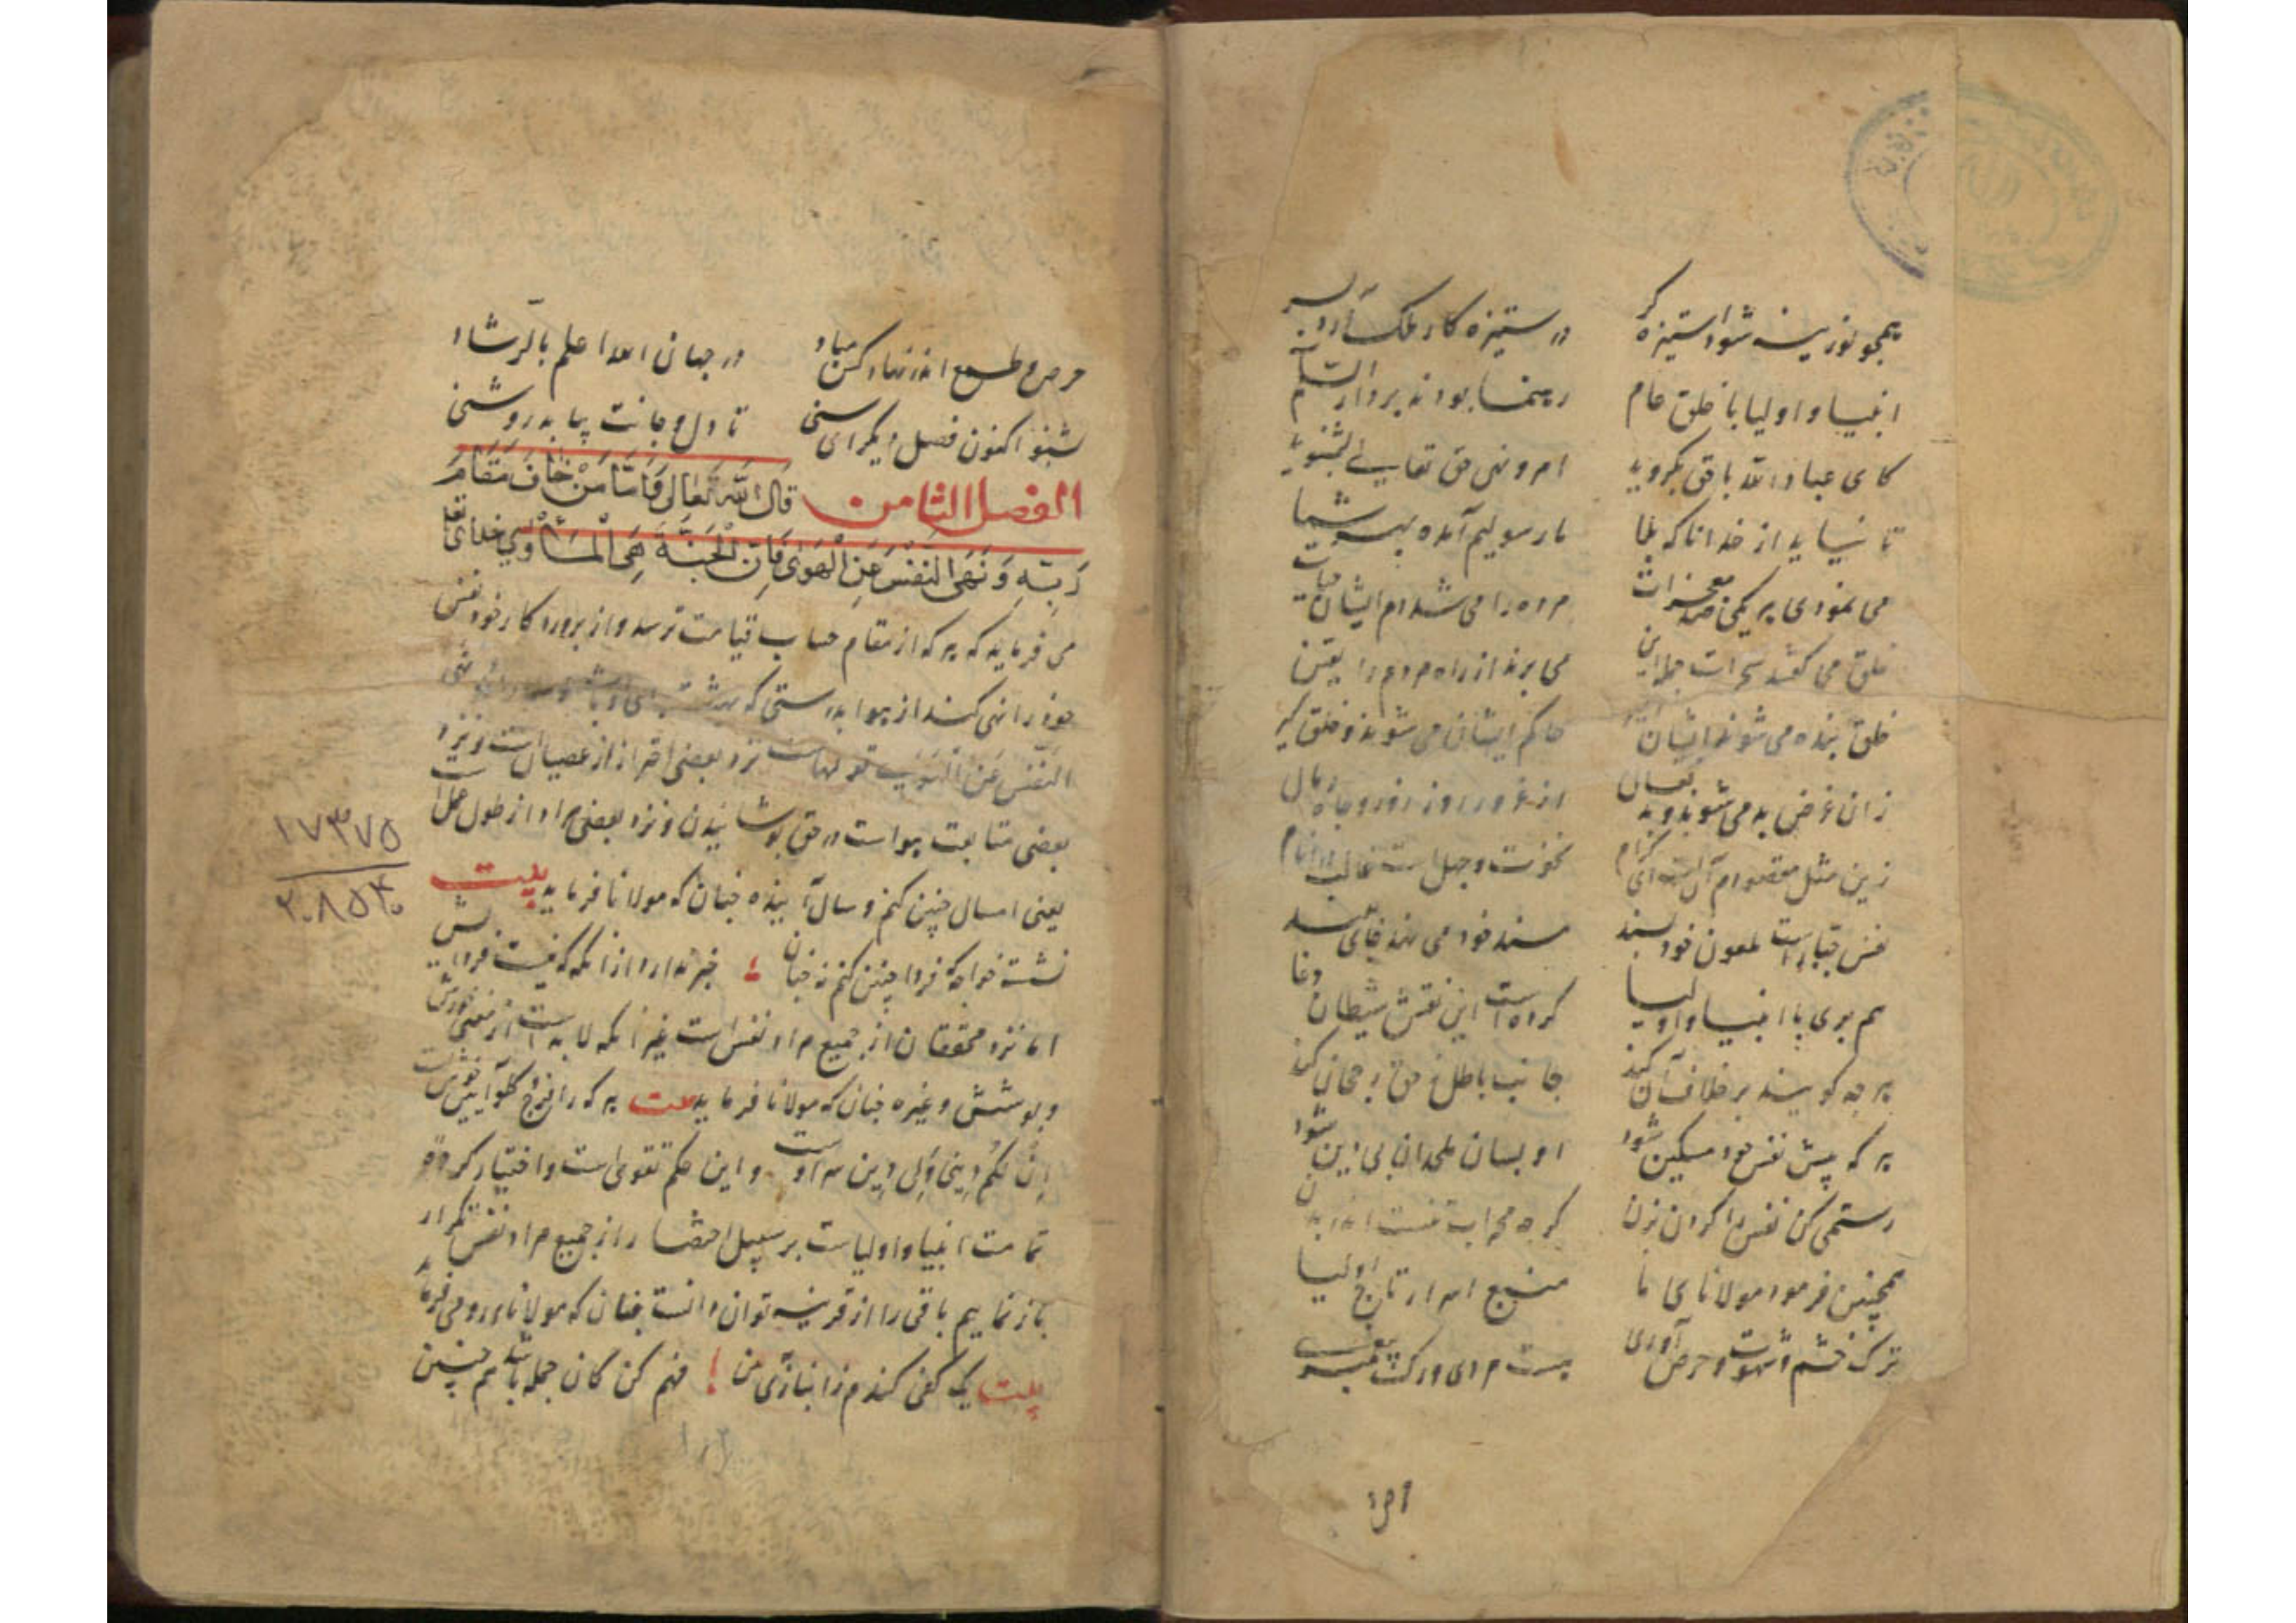 همچو نوزینه شود استیزه گر در ستیزه کار ملک
انبیا و اولیا با خلق عام رهنما بودند بر دار السلام
کای عباد الله با حق بگروید امر و نهی حق تعالی بشنوید
تا نیاید از خدا ناگه بلا ما رسولیم آمده بهر شما
می نمودی هر یکی صد معجزات مرده را می شد دم ایشان حیات
خلق می گفتند جمله این می برند از راه مردم را یقین
خلق بنده می شوند ایشان حاکم ایشان می شوند و خلق گیر
زان غرض به می شوند و به فعال از غرور و روز و زور و جاه و مال
زین مثل مقصودم آن است ای کرام نخوت و جهل است غالب در انام
نفس جبار است ملعون خود پسند مسند خود می نهد جای
هم بری با انبیا و اولیا کرده است این نقش شیطان دغا
هر چه گویند بر خلاف آن کند جانب باطل ز حق رجحان کند
هر که پیش نفس خود مسکین شود او بسان ملحدان بی دین شود
رستمی کن نفس را گردن بزن کرده محرابت
همچنین فرمود مولانای ما منبع اسرار تاج اولیا
ترک خشم و شهوت و حرص آوری هست مردی و رگ پیغمبری
حرص و طمع اندر نهاد کس مباد در جهان الله اعلم بالرشاد
بشنو اکنون فصل دیگر ای سنی تا دل و جانت بیابد روشنی
الفصل الثامن قال الله تعالی فَاَمَّا مَنْ خَافَ مَقَامَ
رَبِّهِ وَنَهَی النَّفْسَ عَنِ الْهَوٰی فَاِنَّ الْجَنَّةَ هِیَ الْمَأْوٰی خدای تعالی
می فرماید که هر که از مقام حساب قیامت ترسد و از پروردگار خود نفس
خود را نهی کند از هوا بدرستی که بهشت جای او باشد نهی
النفس عن الهوی قولهاست نزد بعضی احتراز از عصیان است و نزد
بعضی متابعت هواست در حق پوشانیدن و نزد بعضی مراد از طول عمل است
یعنی امسال چنین کنم و سال آینده چنان که مولانا فرماید بیت
نشسته خواجه که فردا چنین کنم نه چنان خبر ندارد از آنکه که نیست فرداییش
اما نزد محققان از جمیع مراد نفس است غیر آنکه لا بد است از معنی خورش
و پوشش و غیره چنان که مولانا فرماید بیت هر که را فرج و گلو آیین و خوست
ان لکم دینی و لی دین بهر اوست و این حکم تقوی است و اختیار کرده
تمامت انبیا و اولیاست بر سبیل اختصار از جمیع مراد نفس تکرار
باز نماییم باقی را از قرینه توان دانست چنان که مولانای رومی فرماید
بیت یک کفی گندم ز انبازی من فهم کن کان جمله باشد هم چنین
۱۷۳۷۵
۲۰۸۵۳۰